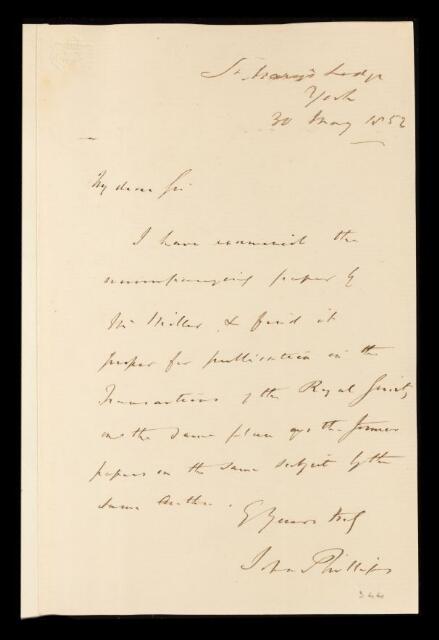 St Mary's Lodge
York
30 May 1852
My dear Sir
I have examined the
accompanying paper by
Mr Miller & find it
proper for publication in the
Transactions of the Royal Society
on the same plan as the former
papers on the same subject by the
same Author.
Yours truly
John Phillips
344